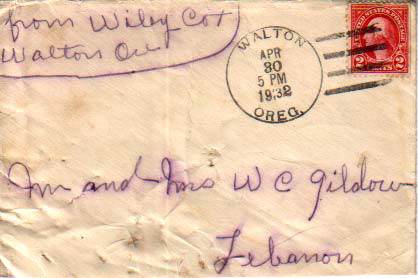 from Wiley Cox
Walton Ore
WALTON
APR
30
5 PM
1932
OREG.
UNITED STATES POSTAGE
2 CENTS 2
Mr and Mrs W C Gildow
Lebanon